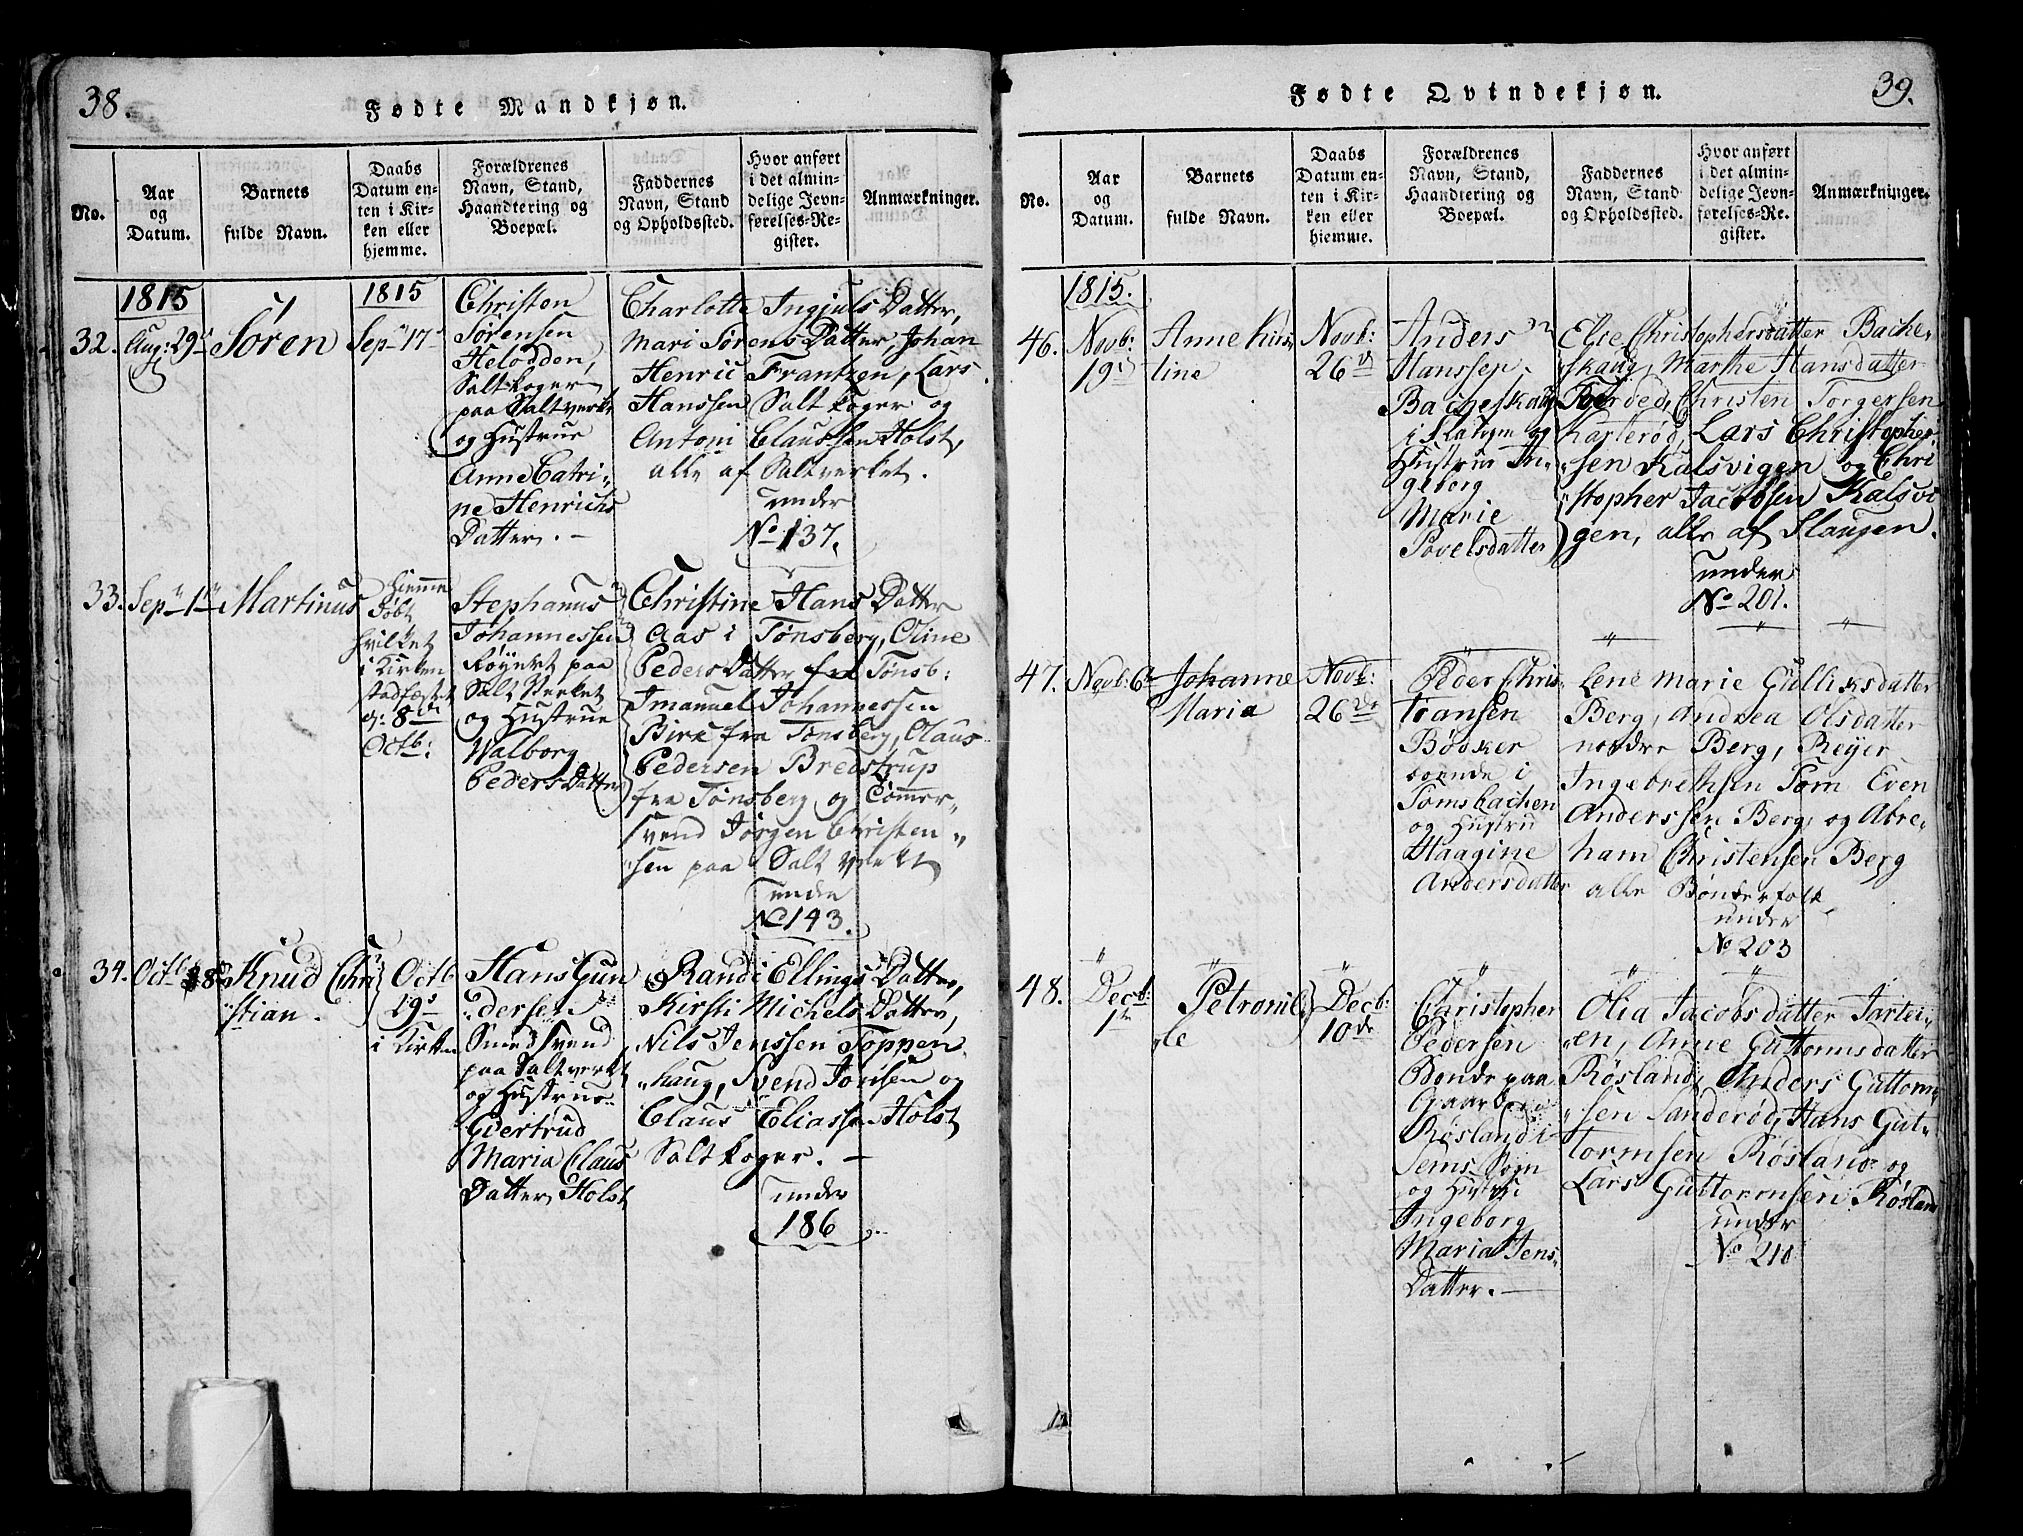 38.
Fødte Mandkjøn.
No.
Aar
og
Datum.
Barnets
fulde Navn.
Daabs
Datum en-
ten i Kir-
ken eller
hjemme.
Forældrenes
Navn, Stand,
Haandtering og
Boepæl.
Faddernes
Navn, Stand
og Opholdssted.
Hvor anført
i det almin-
delige Jevn-
førelses-Re-
gister.
Anmærkninger.
1815
32.
Aug: 29
Sören
1815
Sep. 17
Christen
Sørensen
Helodden,
Saltkoger
paa Saltverket
og Hustrue
Anne Catri-
ne Henrichs
Datter. -
Charlotte Ingjuls Datter,
Mari Sørens Datter, Johan
Henric Frantzen, Lars
Hanssen Saltkoger og
Antoni Claussen Holst,
alle af Saltverket.
under
No 137.
33.
Sep. 1
Martinus
Hjemme
Døbt
hvilket
i Kirken
stadfæstet
d: 8de
Octb:
Stephanus
Johannessen
Røÿert paa
Salt Verket
og Hustrue
Walborg
Peders Datter
Christine Hans Datter
Aas i Tønsberg, Oline
Peders Datter fra Tønsb:
Imanuel Johannessen
Birk fra Tønsberg, Claus
Pedersen Bredstrup
fra Tønsberg og Commer-
svend Jørgen Christen-
sen paa Salt Verket
under
No 143.
34.
Octb 8
Knud Chri
stian.
Octb
19
i Kirken
Hans Gun
dersen
Smedsvend
paa Saltverket
og Hustrue
Giertrud
Maria Claus
Datter Holst
Randi Ellings Datter,
Kirsti Michels Datter,
Nils Jenssen Toppen
haug, Svend Jonsen og
Claus Eliassen Holst
Saltkoger. -
under
186
39.
Fødte Qvindekjøn.
No.
Aar
og
Datum.
Barnets
fulde Navn.
Daabs
Datum en-
ten i Kir-
ken eller
hjemme.
Forældrenes
Navn, Stand,
Haandtering og
Boepæl.
Faddernes
Navn, Stand
og Opholdssted.
Hvor anført
i det almin-
delige Jevn-
førelses-Re-
gister.
Anmærkninger.
1815.
46.
Novb:
19
Anne Kirs
tine
Novb:
26
Anders
Hanssen
Bacheskaug
i Slaugen og
Hustrue In-
geborg
Marie
Povelsdatter
Else Christophersdatter Bache-
skaug, Marthe Hansdatter
Christen Torgersen
Lars Christopher-
sen Kalsvigen og Chri
stopher Jacobsen Kalsvi
gen, alle af Slaugen.
under
No 201.
47.
Novb: 6
Johanne
Maria
Novb:
26de
Peder Chris-
tiansen
Bødker
boende i
Tomsbachen
og Hustru
Haagine
Andersdatter
Lene Marie Gulliksdatter
Berg, Andrea Olsdatter
nordre Berg, Reÿer
Ingebrethsen Tom Even
Anderssen Berg, og Abra-
ham Christensen Berg
alle Bønderfolk
under
No 203
48.
Decb:
1te
Petronil
le
Decb:
10de
Christopher
Pedersen
Bonde paa
Gaarden
Røsland i
Sems Sogn
og Hustru
Ingeborg
Maria Jens-
Datter. -
Olia Jacobsdatter Jartei-
en, Anne Guttormsdatter
Røsland, Anders Guttorm-
sen Sanderød, Hans Gut-
tormsen Røsland og
Lars Guttormsen Røsland
under
No 210